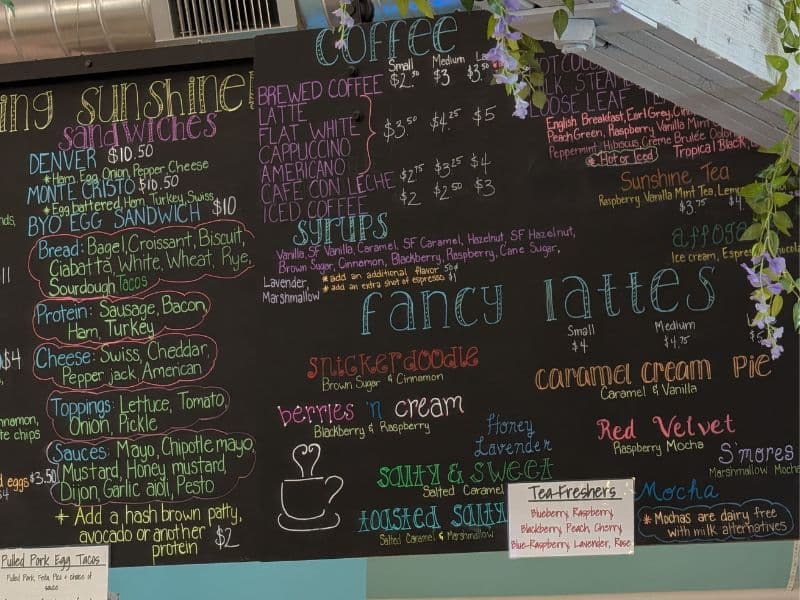 ing sunshine!
sandwiches
DENVER $10.50
*Ham, Egg, Onion, Pepper, Cheese
MONTE CRISTO $10.50
*Egg battered, Ham, Turkey, Swiss
BYO EGG SANDWICH $10
Bread: Bagel, Croissant, Biscuit,
Ciabatta, White, Wheat, Rye,
Sourdough Tacos
Protein: Sausage, Bacon,
Ham, Turkey
Cheese: Swiss, Cheddar,
Pepper jack, American
Toppings: Lettuce, Tomato,
Onion, Pickle
Sauces: Mayo, Chipotle mayo,
Mustard, Honey mustard,
Dijon, Garlic aioli, Pesto
+ Add a hash brown patty,
avocado or another
protein $2
$4
te chips
d eggs $3.50
Pulled Pork Egg Tacos
Pulled Pork, Feta, Pico & choice of
sauce
coffee
Small Medium
BREWED COFFEE $2.50 $3 $3.50
LATTE
FLAT WHITE $3.50 $4.25 $5
CAPPUCCINO
AMERICANO
CAFE CON LECHE $2.75 $3.25 $4
ICED COFFEE $2 $2.50 $3
syrups
Vanilla, SF Vanilla, Caramel, SF Caramel, Hazelnut, SF Hazelnut,
Brown Sugar, Cinnamon, Blackberry, Raspberry, Cane Sugar,
Lavender,
Marshmallow
*add an additional flavor 50¢
*add an extra shot of espresso $1
fancy lattes
Small Medium
$4 $4.75
snickerdoodle
Brown Sugar & Cinnamon
caramel cream pie
Caramel & Vanilla
berries 'n cream
Blackberry & Raspberry
Honey
Lavender
Red Velvet
Raspberry Mocha
S'mores
Marshmallow Mocha
salty & sweet
Salted Caramel
toasted salty
Salted Caramel & Marshmallow
Mocha
*Mochas are dairy free
with milk alternatives
Tea-Freshers
Blueberry, Raspberry,
Blackberry, Peach, Cherry,
Blue-Raspberry, Lavender, Rose
LOOSE LEAF
English Breakfast, Earl Grey,
Peach Green, Raspberry Vanilla Mint
Peppermint, Hibiscus, Creme Brulee Oolong
*Hot or Iced Tropical Black,
Sunshine Tea
Raspberry Vanilla Mint Tea,
$3.75 $4
Ice cream,